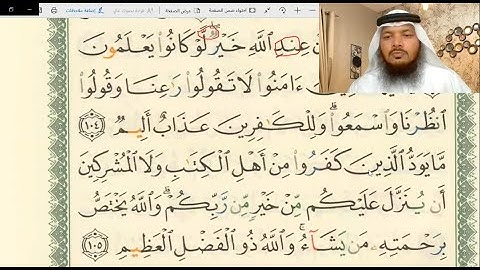 احتواء ضمن الصفحة عرض الصفحة قراءة بصوت عالٍ إضافة ملاحظات
عِندِ ٱللَّهِ خَيْرٌ لَّوْ كَانُوا۟ يَعْلَمُونَ
ءَامَنُوا۟ لَا تَقُولُوا۟ رَٰعِنَا وَقُولُوا۟
ٱنظُرْنَا وَٱسْمَعُوا۟ ۗ وَلِلْكَٰفِرِينَ عَذَابٌ أَلِيمٌ ١٠٤
مَّا يَوَدُّ ٱلَّذِينَ كَفَرُوا۟ مِنْ أَهْلِ ٱلْكِتَٰبِ وَلَا ٱلْمُشْرِكِينَ
أَن يُنَزَّلَ عَلَيْكُم مِّنْ خَيْرٍ مِّن رَّبِّكُمْ ۗ وَٱللَّهُ يَخْتَصُّ
بِرَحْمَتِهِۦ مَن يَشَآءُ ۚ وَٱللَّهُ ذُو ٱلْفَضْلِ ٱلْعَظِيمِ ١٠٥